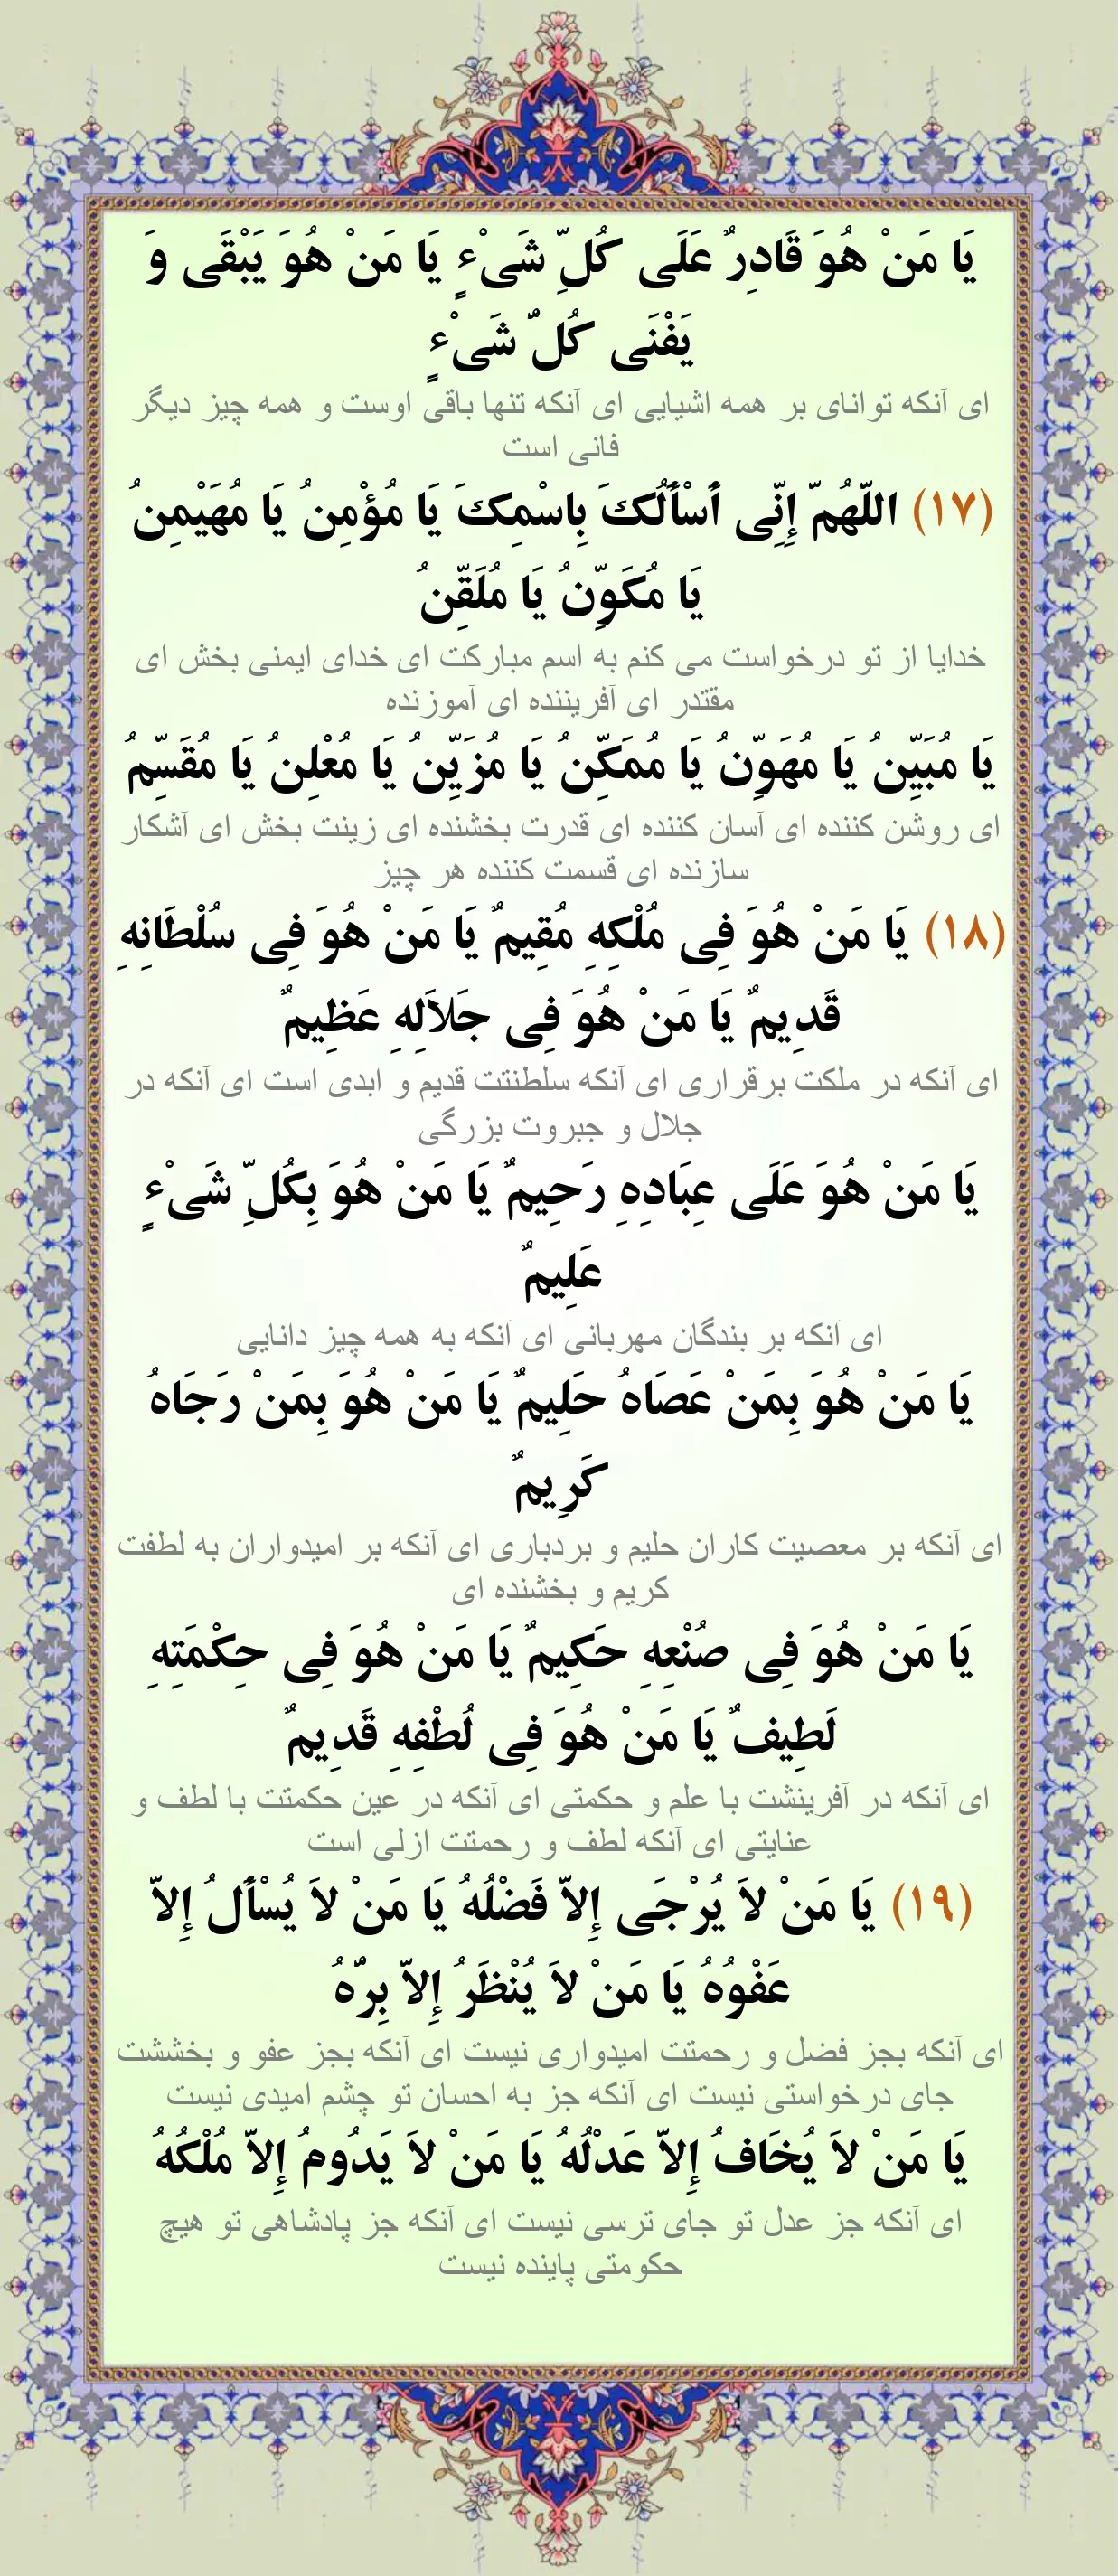 يَا مَنْ هُوَ قَادِرٌ عَلَى كُلِّ شَيْءٍ يَا مَنْ هُوَ يَبْقَى وَ
يَفْنَى كُلُّ شَيْءٍ
ای آنکه توانای بر همه اشیایی ای آنکه تنها باقی اوست و همه چیز دیگر
فانی است
(۱۷) اللّهُمّ إِنِّي أَسْأَلُكَ بِاسْمِكَ يَا مُؤْمِنُ يَا مُهَيْمِنُ
يَا مُكَوِّنُ يَا مُلَقِّنُ
خدایا از تو درخواست می کنم به اسم مبارکت ای خدای ایمنی بخش ای
مقتدر ای آفریننده ای آموزنده
يَا مُبَيِّنُ يَا مُهَوِّنُ يَا مُمَكِّنُ يَا مُزَيِّنُ يَا مُعْلِنُ يَا مُقَسِّمُ
ای روشن کننده ای آسان کننده ای قدرت بخشنده ای زینت بخش ای آشکار
سازنده ای قسمت کننده هر چیز
(۱۸) يَا مَنْ هُوَ فِي مُلْكِهِ مُقِيمٌ يَا مَنْ هُوَ فِي سُلْطَانِهِ
قَدِيمٌ يَا مَنْ هُوَ فِي جَلاَلِهِ عَظِيمٌ
ای آنکه در ملکت برقراری ای آنکه سلطنتت قدیم و ابدی است ای آنکه در
جلال و جبروت بزرگی
يَا مَنْ هُوَ عَلَى عِبَادِهِ رَحِيمٌ يَا مَنْ هُوَ بِكُلِّ شَيْءٍ
عَلِيمٌ
ای آنکه بر بندگان مهربانی ای آنکه به همه چیز دانایی
يَا مَنْ هُوَ بِمَنْ عَصَاهُ حَلِيمٌ يَا مَنْ هُوَ بِمَنْ رَجَاهُ
كَرِيمٌ
ای آنکه بر معصیت کاران حلیم و بردباری ای آنکه بر امیدواران به لطفت
کریم و بخشنده ای
يَا مَنْ هُوَ فِي صُنْعِهِ حَكِيمٌ يَا مَنْ هُوَ فِي حِكْمَتِهِ
لَطِيفٌ يَا مَنْ هُوَ فِي لُطْفِهِ قَدِيمٌ
ای آنکه در آفرینشت با علم و حکمتی ای آنکه در عین حکمتت با لطف و
عنایتی ای آنکه لطف و رحمتت ازلی است
(۱۹) يَا مَنْ لاَ يُرْجَى إِلاّ فَضْلُهُ يَا مَنْ لاَ يُسْأَلُ إِلاّ
عَفْوُهُ يَا مَنْ لاَ يُنْظَرُ إِلاّ بِرُّهُ
ای آنکه بجز فضل و رحمتت امیدواری نیست ای آنکه بجز عفو و بخششت
جای درخواستی نیست ای آنکه جز به احسان تو چشم امیدی نیست
يَا مَنْ لاَ يُخَافُ إِلاّ عَدْلُهُ يَا مَنْ لاَ يَدُومُ إِلاّ مُلْكُهُ
ای آنکه جز عدل تو جای ترسی نیست ای آنکه جز پادشاهی تو هیچ
حکومتی پاینده نیست